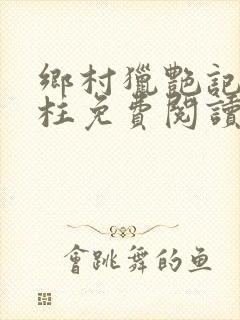 鄉村獵艷記
枉免費閱讀
會跳舞的鱼